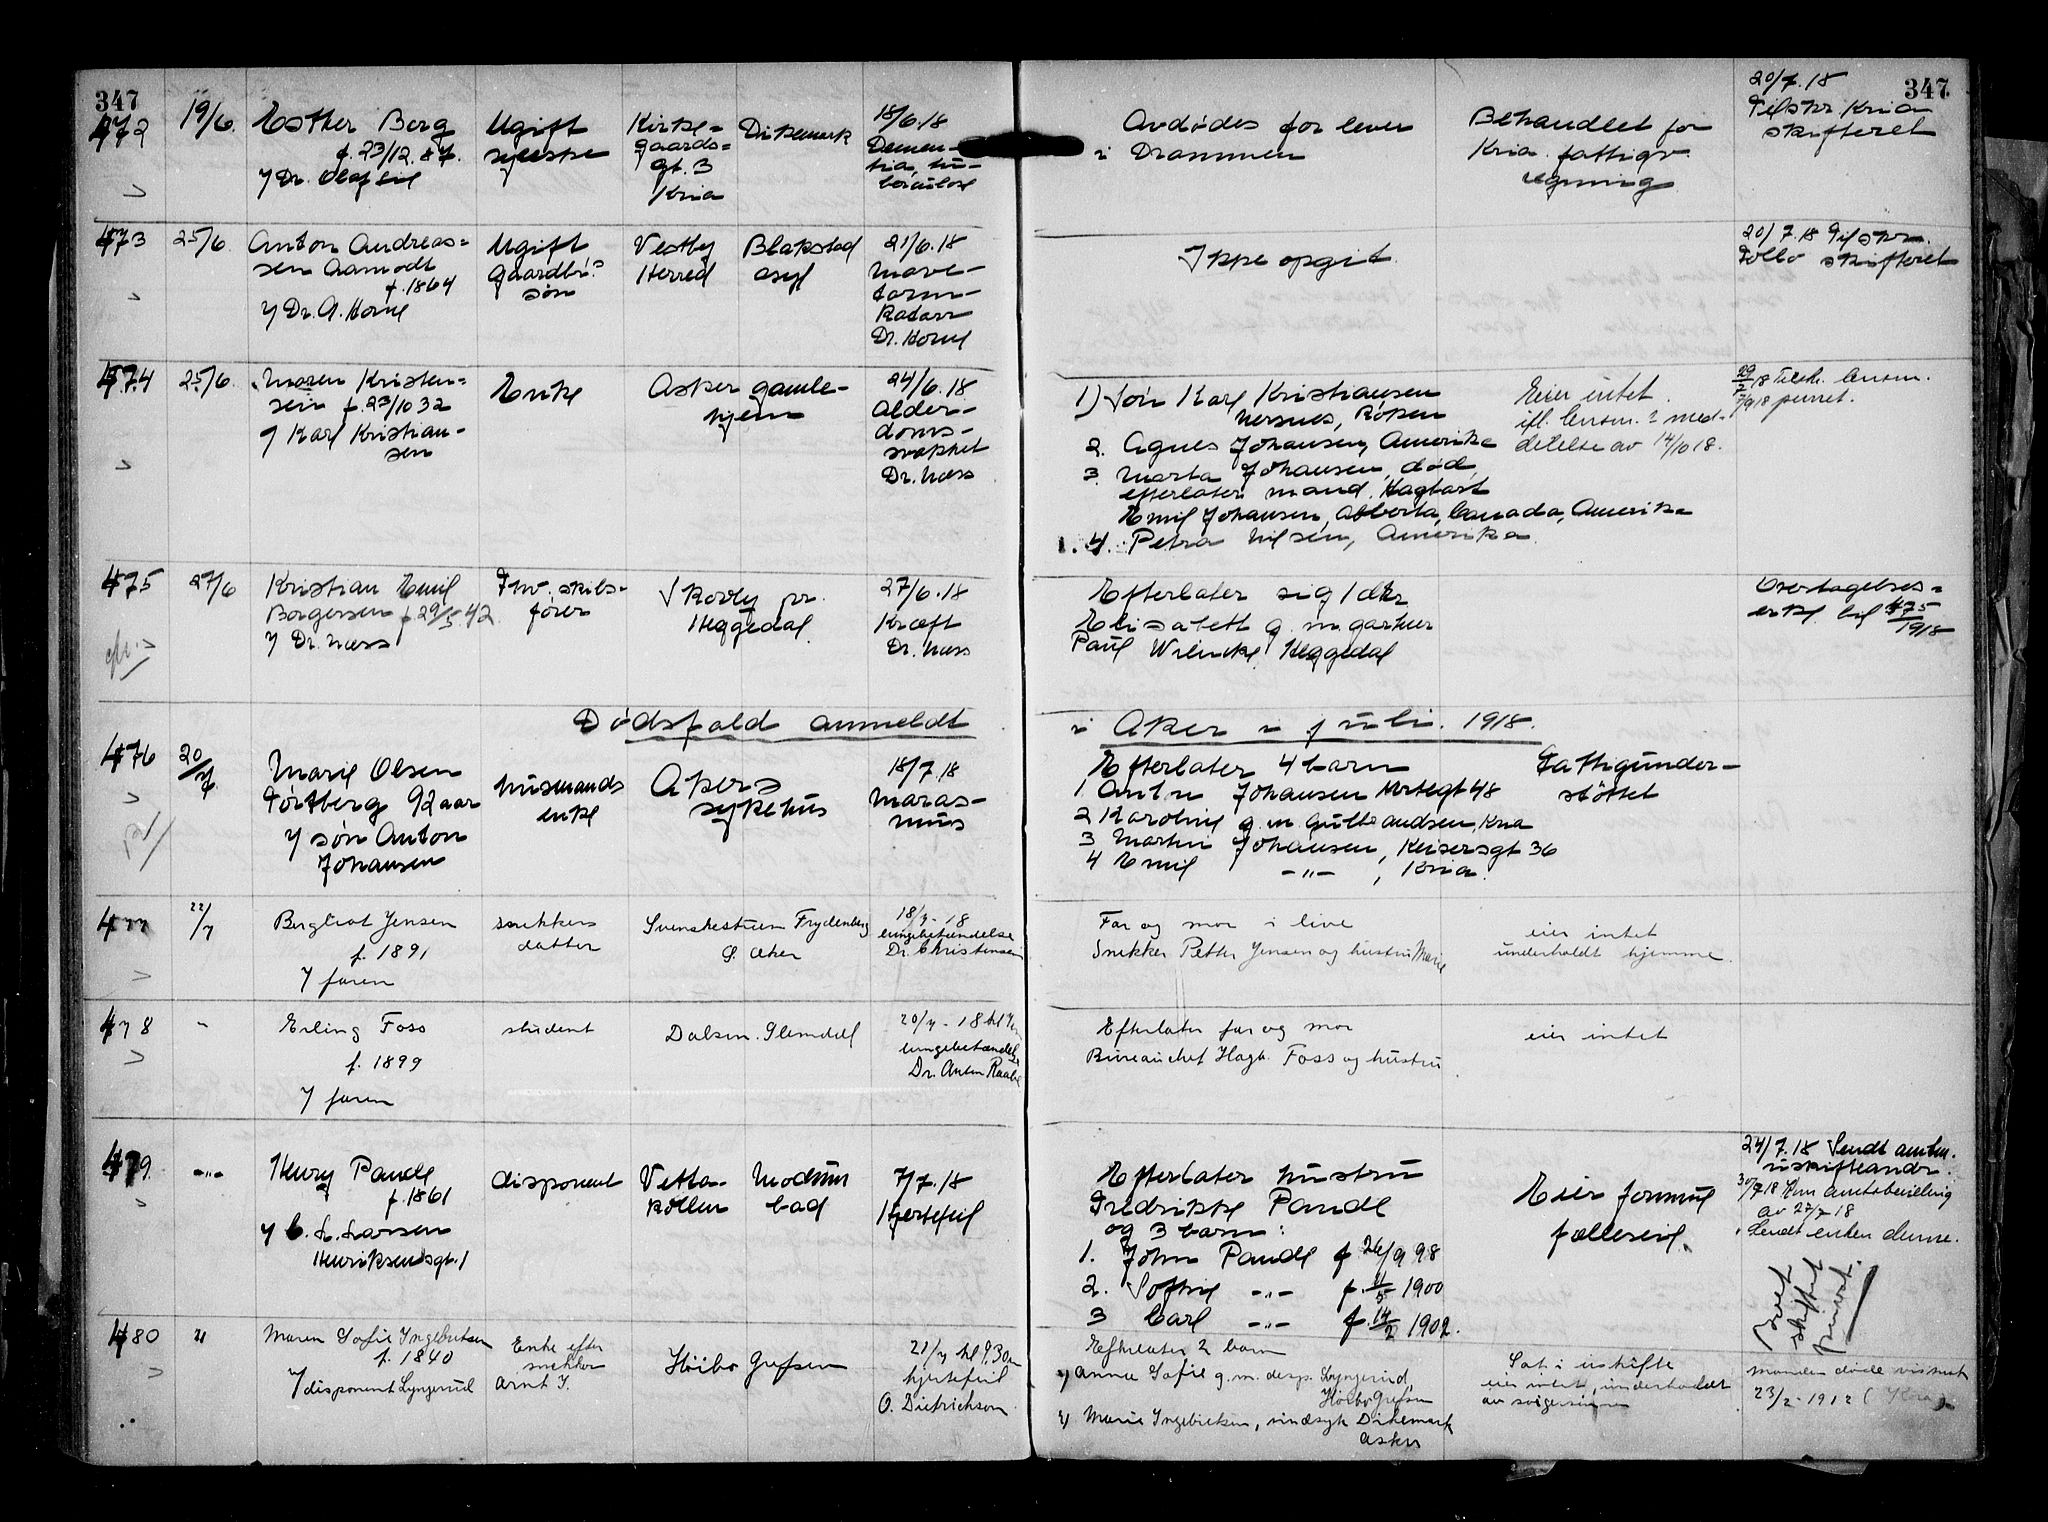 347
347
472
19/6.
Esther Berg
f. 23/12.87.
Ugift
sypeske
Kirke-
gaards-
gt. 3
Kria
Dikemark
18/6.18
Demen-
tia, tu-
berculose
Avdødes for lever
i Drammen
Behandlet for
Kria. fattigv.
regning
20/7.18
Tilskr Kria
skifteret
473
25/6
Anton Andreas-
sen Aamodt
f. 1864
v/ Dr. A. Horne
Ugift
gaardbr.
søn
Vestby
Herred
Blakstad
asyl
21/6.18
Mave-
tarm-
katarr
Dr. Horne
Ikke opgit.
20/7.18 Tilskr.
Follo skifteret
474
25/6.
Maren Kristen-
sen f. 23/10 32
v/ Karl Kristian-
sen
Enke
Asker gamle-
hjem
24/6.18
Alder-
doms-
svakhet
Dr. Næss
1) Søn Karl Kristiansen
Nersnes, Røken
2. Agnes Johansen, Amerika
3. Marta Johansen, død,
efterlater mand. Hagbart
Emil Johansen, Alberta, Canada, Amerika
4. Petra Nilsen, Amerika.
Eier intet.
ifl. lensm. med-
delelse av 14/10 18.
29/7 18 Tilskr. lensm.
7/9 18 purret.
475
27/6
Kristian Emil
Borgersen f. 29/5 42
v/ Dr. Næss
Fhv. skibs-
fører
Skovly pr.
Heggedal
27/6.18
Kræft
Dr. Næss
Efterlater sig 1 dtr
Elisabett g. m. gartner
Paul Wilncke, Heggedal
Overtagelses-
erkl. bil 475/1918
Dødsfald anmeldt
i Aker i juli. 1918.
476
20/7
Marie Olsen
Tortberg 92 aar
v/ søn Anton
Johansen
Husmands
enke
Akers
sykehus
18/7.18
Maras-
mus
Efterlater 4 barn
1 Anton Johansen Mrtegt 48
2 Karoline g. m. Gulbrandsen, Kria
3 Martin Johansen, Keisersgt 36
4 Emil -"-, Kria.
Fattigunder-
støttet
477
22/7
Bergliot Jensen
f. 1891
v/ faren
snekkers
datter
Svenskestuen Frydenberg
Ø. Aker
18/7-18
lungebetændelse
Dr. Christensen
Far og mor i live
Snekker Petter Jensen og hustru Marie
eier intet
underholdt hjemme.
478
"
Erling Foss
f. 1899
v/ faren
student
Dalsen. Slemdal
20/7-18 kl
lungebetændelse
Dr. Anton Raabe
Efterlater far og mor
Bureauchef Hagb. Foss og hustru
eier intet
479
-"-
Henry Paude
f. 1861
v/ C. L. Larsen
Henriksensgt. 1
disponent
Vetta-
kollen
Modum
bad
7/7.18
Hjertefeil
Efterlater hustru
Fredrikke Paude
og 3 barn:
1. John Paude f 26/9 98
2. Sofie -"- f. 1/5 1900
3 Carl -"- f. 14/2 1902.
Eier formue
fælleseie.
24/7.18 Sendt anm.
uskifteandr.
30/7 18 Kom amtsbevilling
av 27/7 18
Sendt enken denne.
Privat
skiftet
privat.
480
"
Maren Sofie Ingebretsen
f. 1840
v/ disponent Lyngerud
Enke efter
snekker
Arnt I.
Høibo Grefsen
21/7 kl 9,30
hjertefeil
O. Dietrichson
Efterlater 2 barn
1) Anna Sofie g. m. desp. Lyngerud,
Høibo Grefsen
2) Marie Ingebretsen, sindsyk Dikemark
Asker
Sat i uskifte
eier intet, underholdt
av svigersønnen
manden døde vistnok
23/2-1912 (Kria)